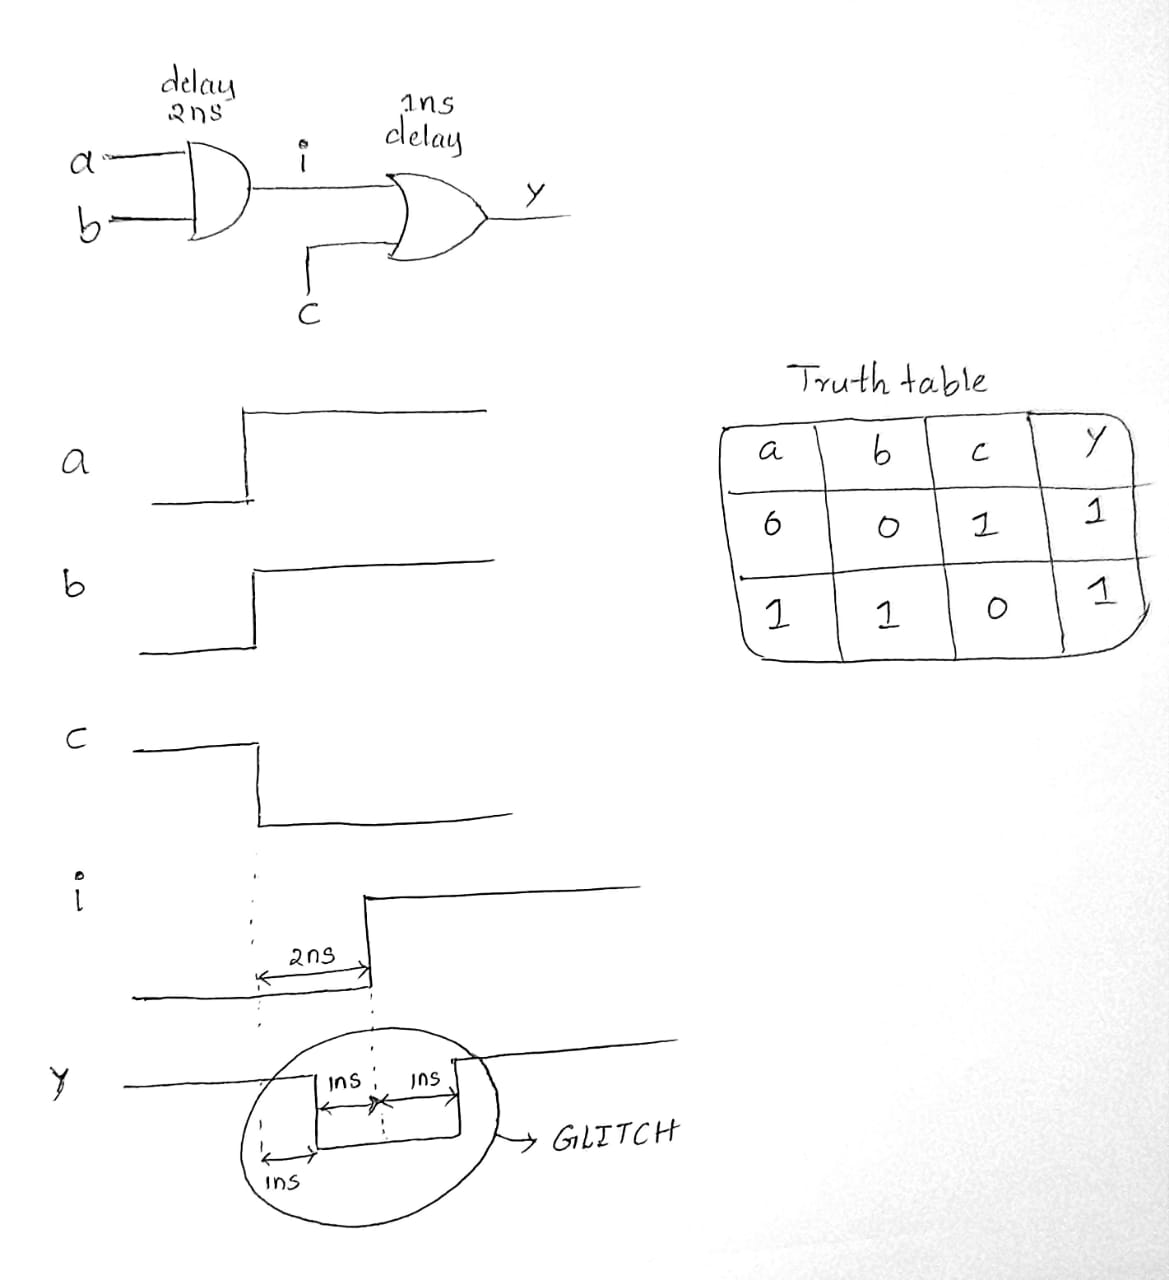 delay
2ns
1ns
delay
a
i
y
b
c
Truth table
a b c y
6 0 1 1
1 1 0 1
a
b
c
i
2ns
y
1ns 1ns
GLITCH
1ns